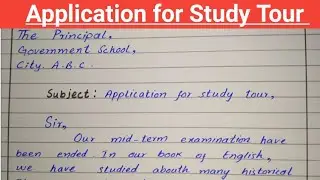 Application for Study Tour
The Principal,
Government School,
City. A.B.C.
Subject: Application for study tour,
Sir,
Our mid-term examination have
been ended. In our book of English,
we have studied abouth many historical